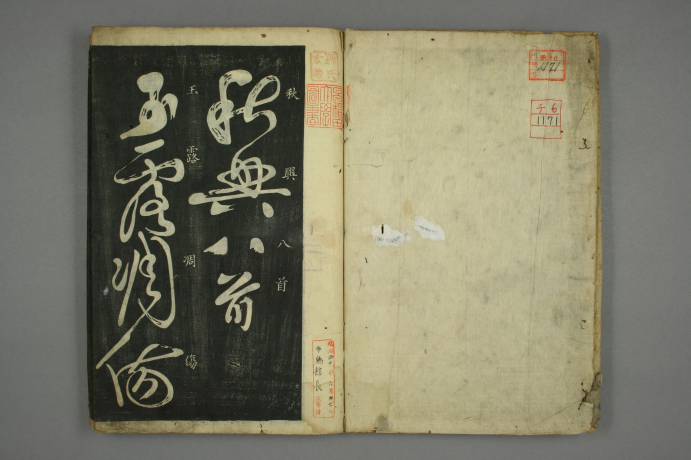 チ6
1171
1171
秋興八首
秋興八首
玉露凋傷
玉露凋傷